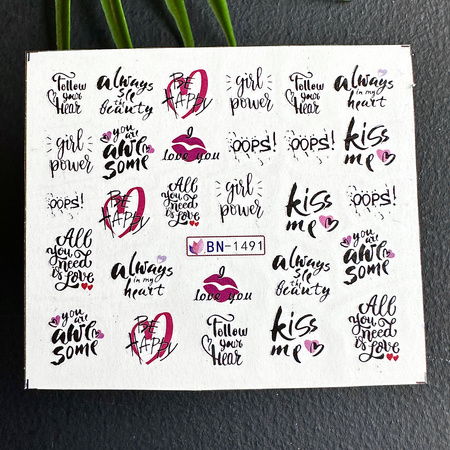 Follow your Hear
always see the beauty
BE HAPPY
girl power
Follow your Hear
always in my heart
girl power
you are awe some
I love you
OOPS!
OOPS!
kiss me
OOPS!
BE HAPPY
All you Need is Love
girl power
kiss me
OOPS!
All you Need is Love
always in my heart
BN-1491
I love you
always see the beauty
you are awe some
you are awe some
BE HAPPY
Follow your Hear
kiss me
All you Need is Love